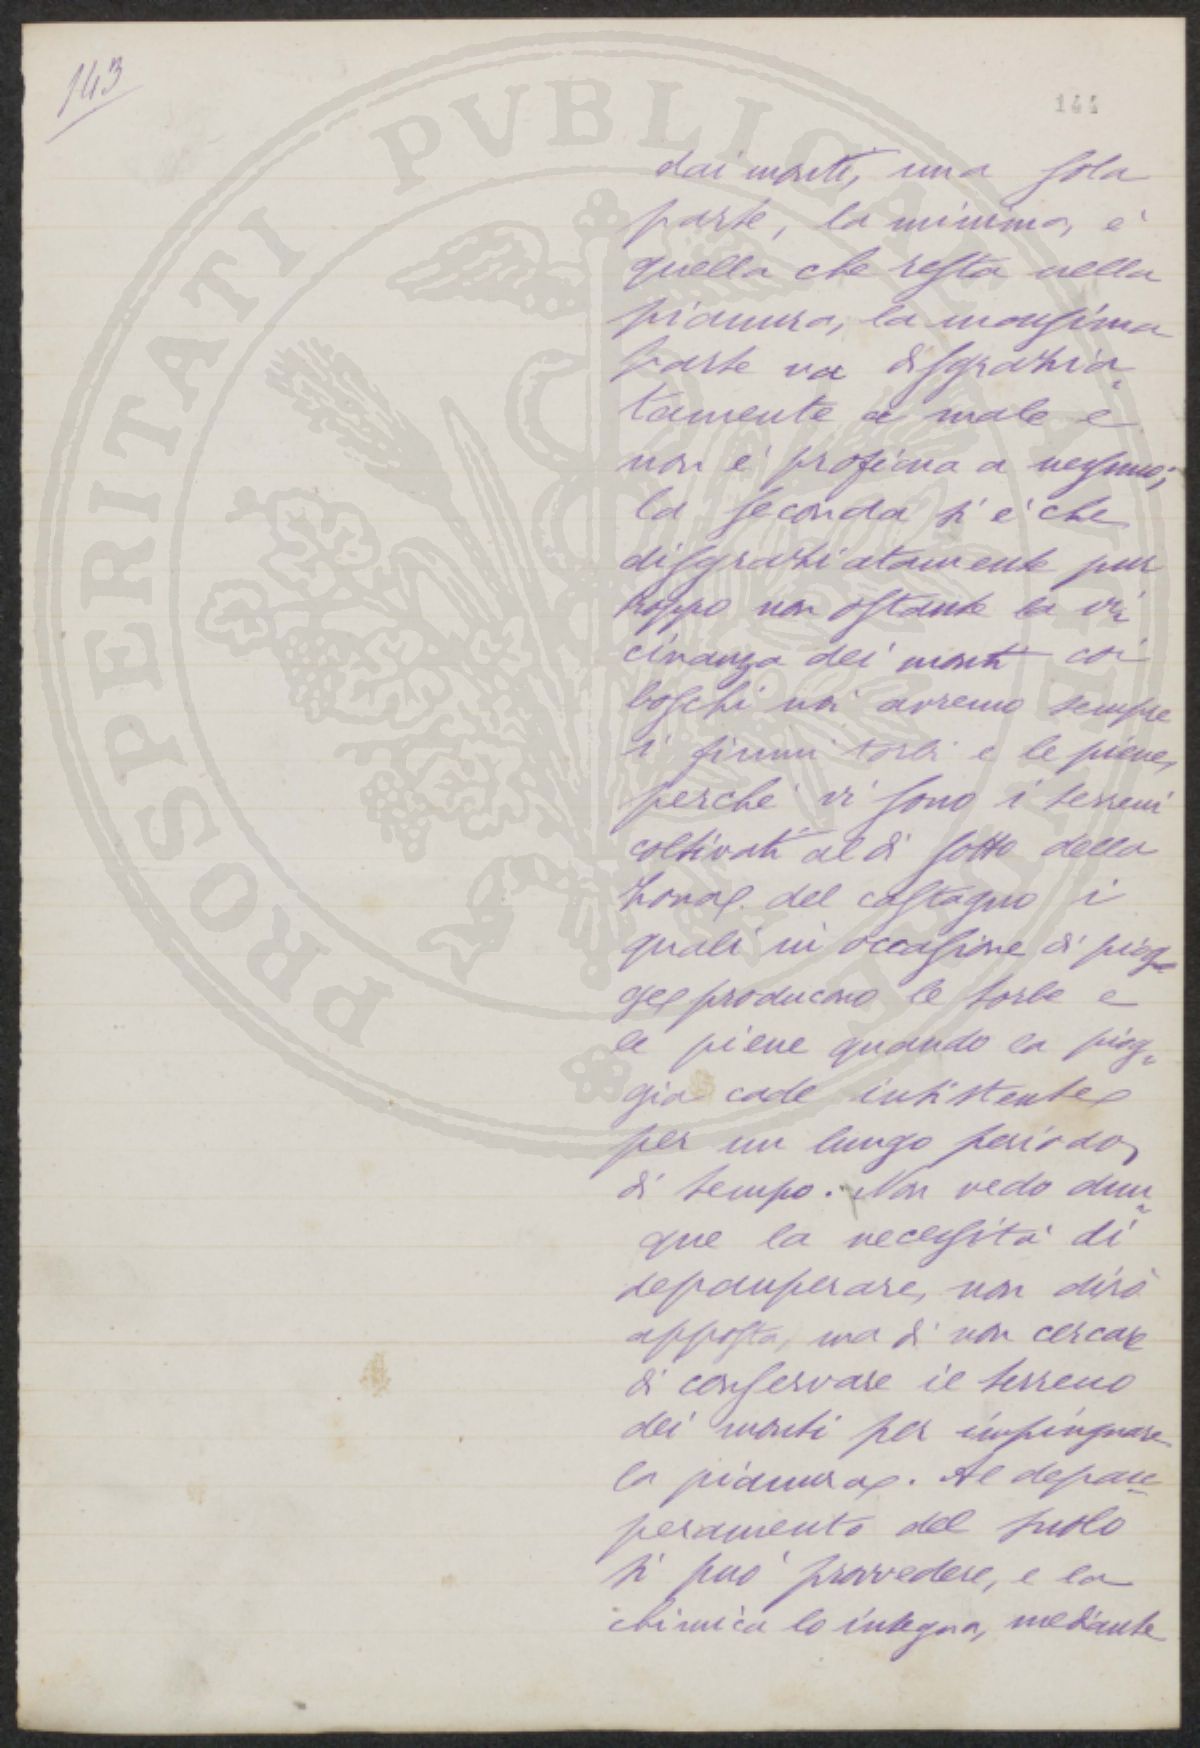 143
144
PROSPERITATI PVBLICAE
dai monti, una sola
parte, la minima, e'
quella che resta nella
pianura, la massima
parte va disgrazia
tamente a male e
non e' proficua a nessuno;
la seconda si e' che
disgraziatamente pur
troppo non ostante la vi
cinanza dei monti coi
boschi noi avremo sempre
i fiumi torbi e le piene,
perche' vi sono i terreni
coltivati al di sotto della
zona del castagno i
quali in occasione di piog
ge producono le torbe e
le piene quando la piog
gia cade insistente
per un lungo periodo
di tempo. Non vedo dun
que la necessità di
depauperare, non dirò
apposta, ma di non cercare
di conservare il terreno
dei monti per impinguare
la pianura. Al depau
peramento del suolo
si puo' provvedere, e la
chimica lo insegna, mediante